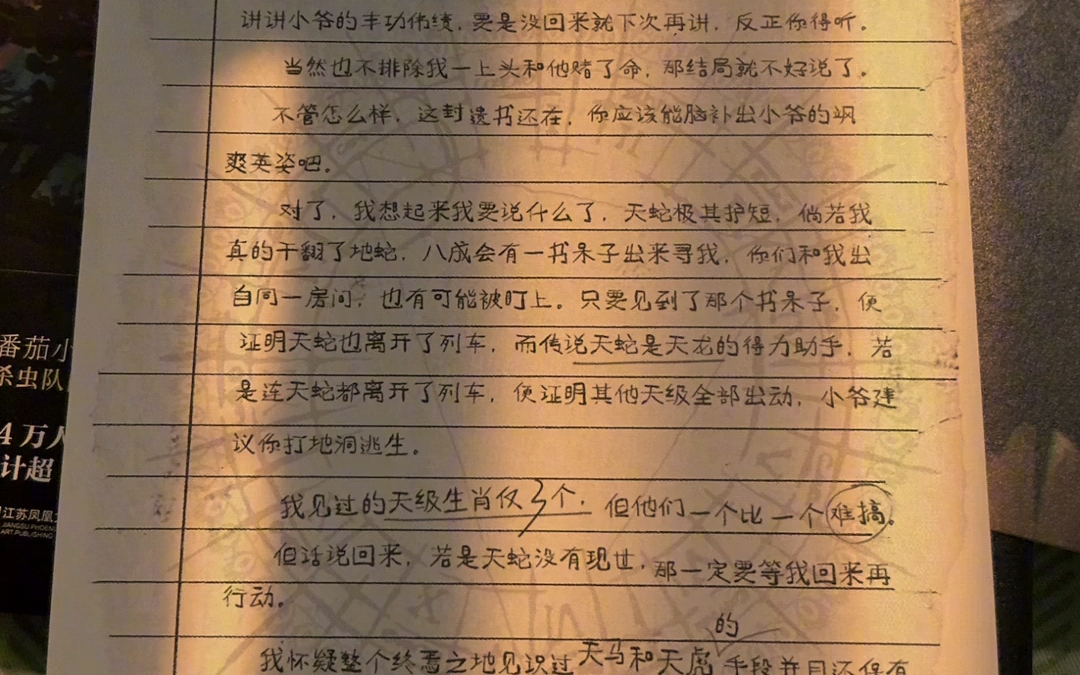 讲讲小爷的丰功伟绩,要是没回来就下次再讲,反正你得听。
当然也不排除我一上头和他赌了命,那结局就不好说了。
不管怎么样,这封遗书还在,你应该能脑补出小爷的飒
爽英姿吧。
对了,我想起来我要说什么了,天蛇极其护短,倘若我
真的干翻了地蛇,八成会有一书呆子出来寻我,你们和我出
自同一房间,也有可能被盯上。只要见到了那个书呆子,便
证明天蛇也离开了列车,而传说天蛇是天龙的得力助手,若
是连天蛇都离开了列车,便证明其他天级全部出动,小爷建
议你打地洞逃生。
我见过的天级生肖仅3个,但他们一个比一个难搞。
但话说回来,若是天蛇没有现世,那一定要等我回来再
行动。
我怀疑整个终焉之地见识过天马和天虎的手段并且还保有
番茄小
杀虫队
4万人
计超
江苏凤凰文
JIANGSU PHOENIX
ART PUBLISHING